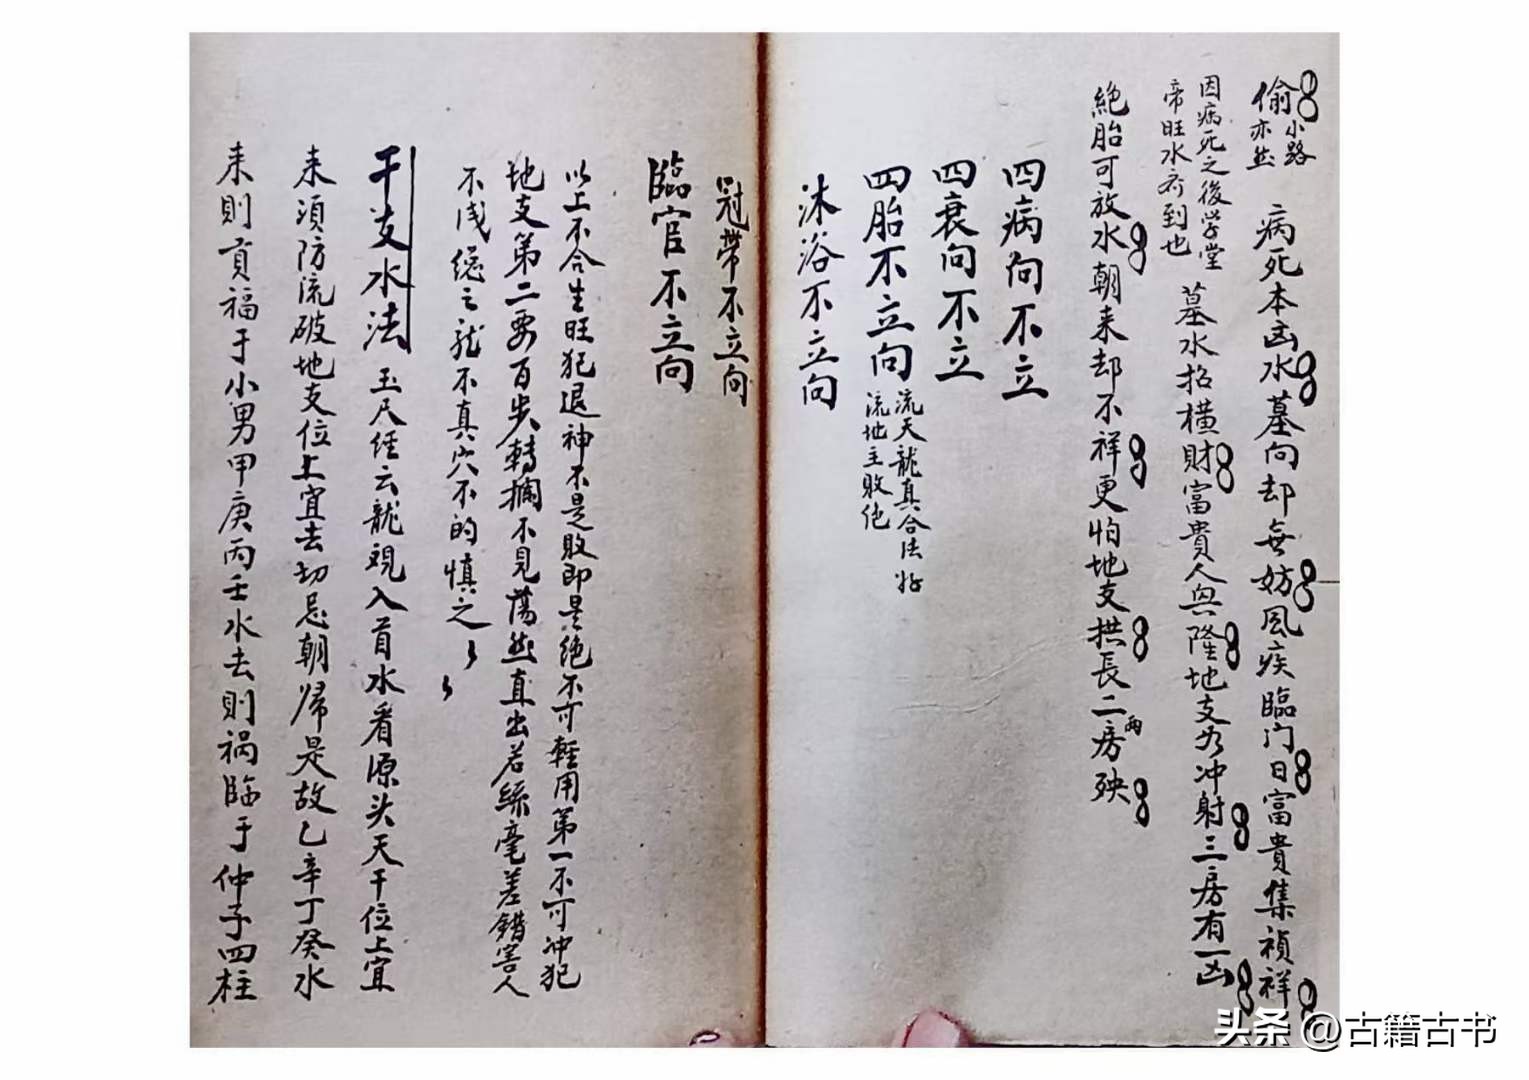 偷
小路
亦然
病死本凶水墓向却無妨風疾臨门日富貴集禎祥
因病死之後学堂
帝旺水齐到也
墓水招横財富貴人興隆地支为冲射三房有一凶
絕胎可放水朝来却不祥更怕地支拱長二两房殃
四病向不立
四衰向不立
四胎不立向
流天龍真合法好
流地主敗絕
沐浴不立向
冠帶不立向
臨官不立向
以上不合生旺犯退神不是敗即是绝不可輕用第一不可冲犯
地支第二要百步轉攔不見蕩然直出若絲毫差錯害人
不浅總之龍不真穴不的慎之
干支水法
玉尺经云龍觀入首水看源头天干位上宜
来須防流破地支位上宜去切忌朝归是故乙辛丁癸水
来則貢福于小男甲庚丙壬水去則祸臨于仲子四柱
头条@古籍古书